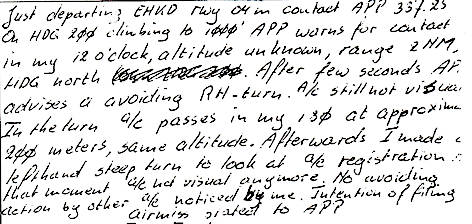 Just departing EHKD Rwy 04 in contact APP 337.25
On HDG 2ØØ climbing to 1ØØØ' APP warns for contact
in my 12 o'clock, altitude unknown, range 2 NM,
HDG north. After few seconds AP
advises a avoiding RH-turn. A/c still not visua
In the turn a/c passes in my 13Ø at approxima
2ØØ meters, same altitude. Afterwards I made a
lefthand steep turn to look at a/c registration.
that moment a/c not visual anymore. No avoiding
action by other a/c noticed by me. Intention of filing
Airmiss stated to APP